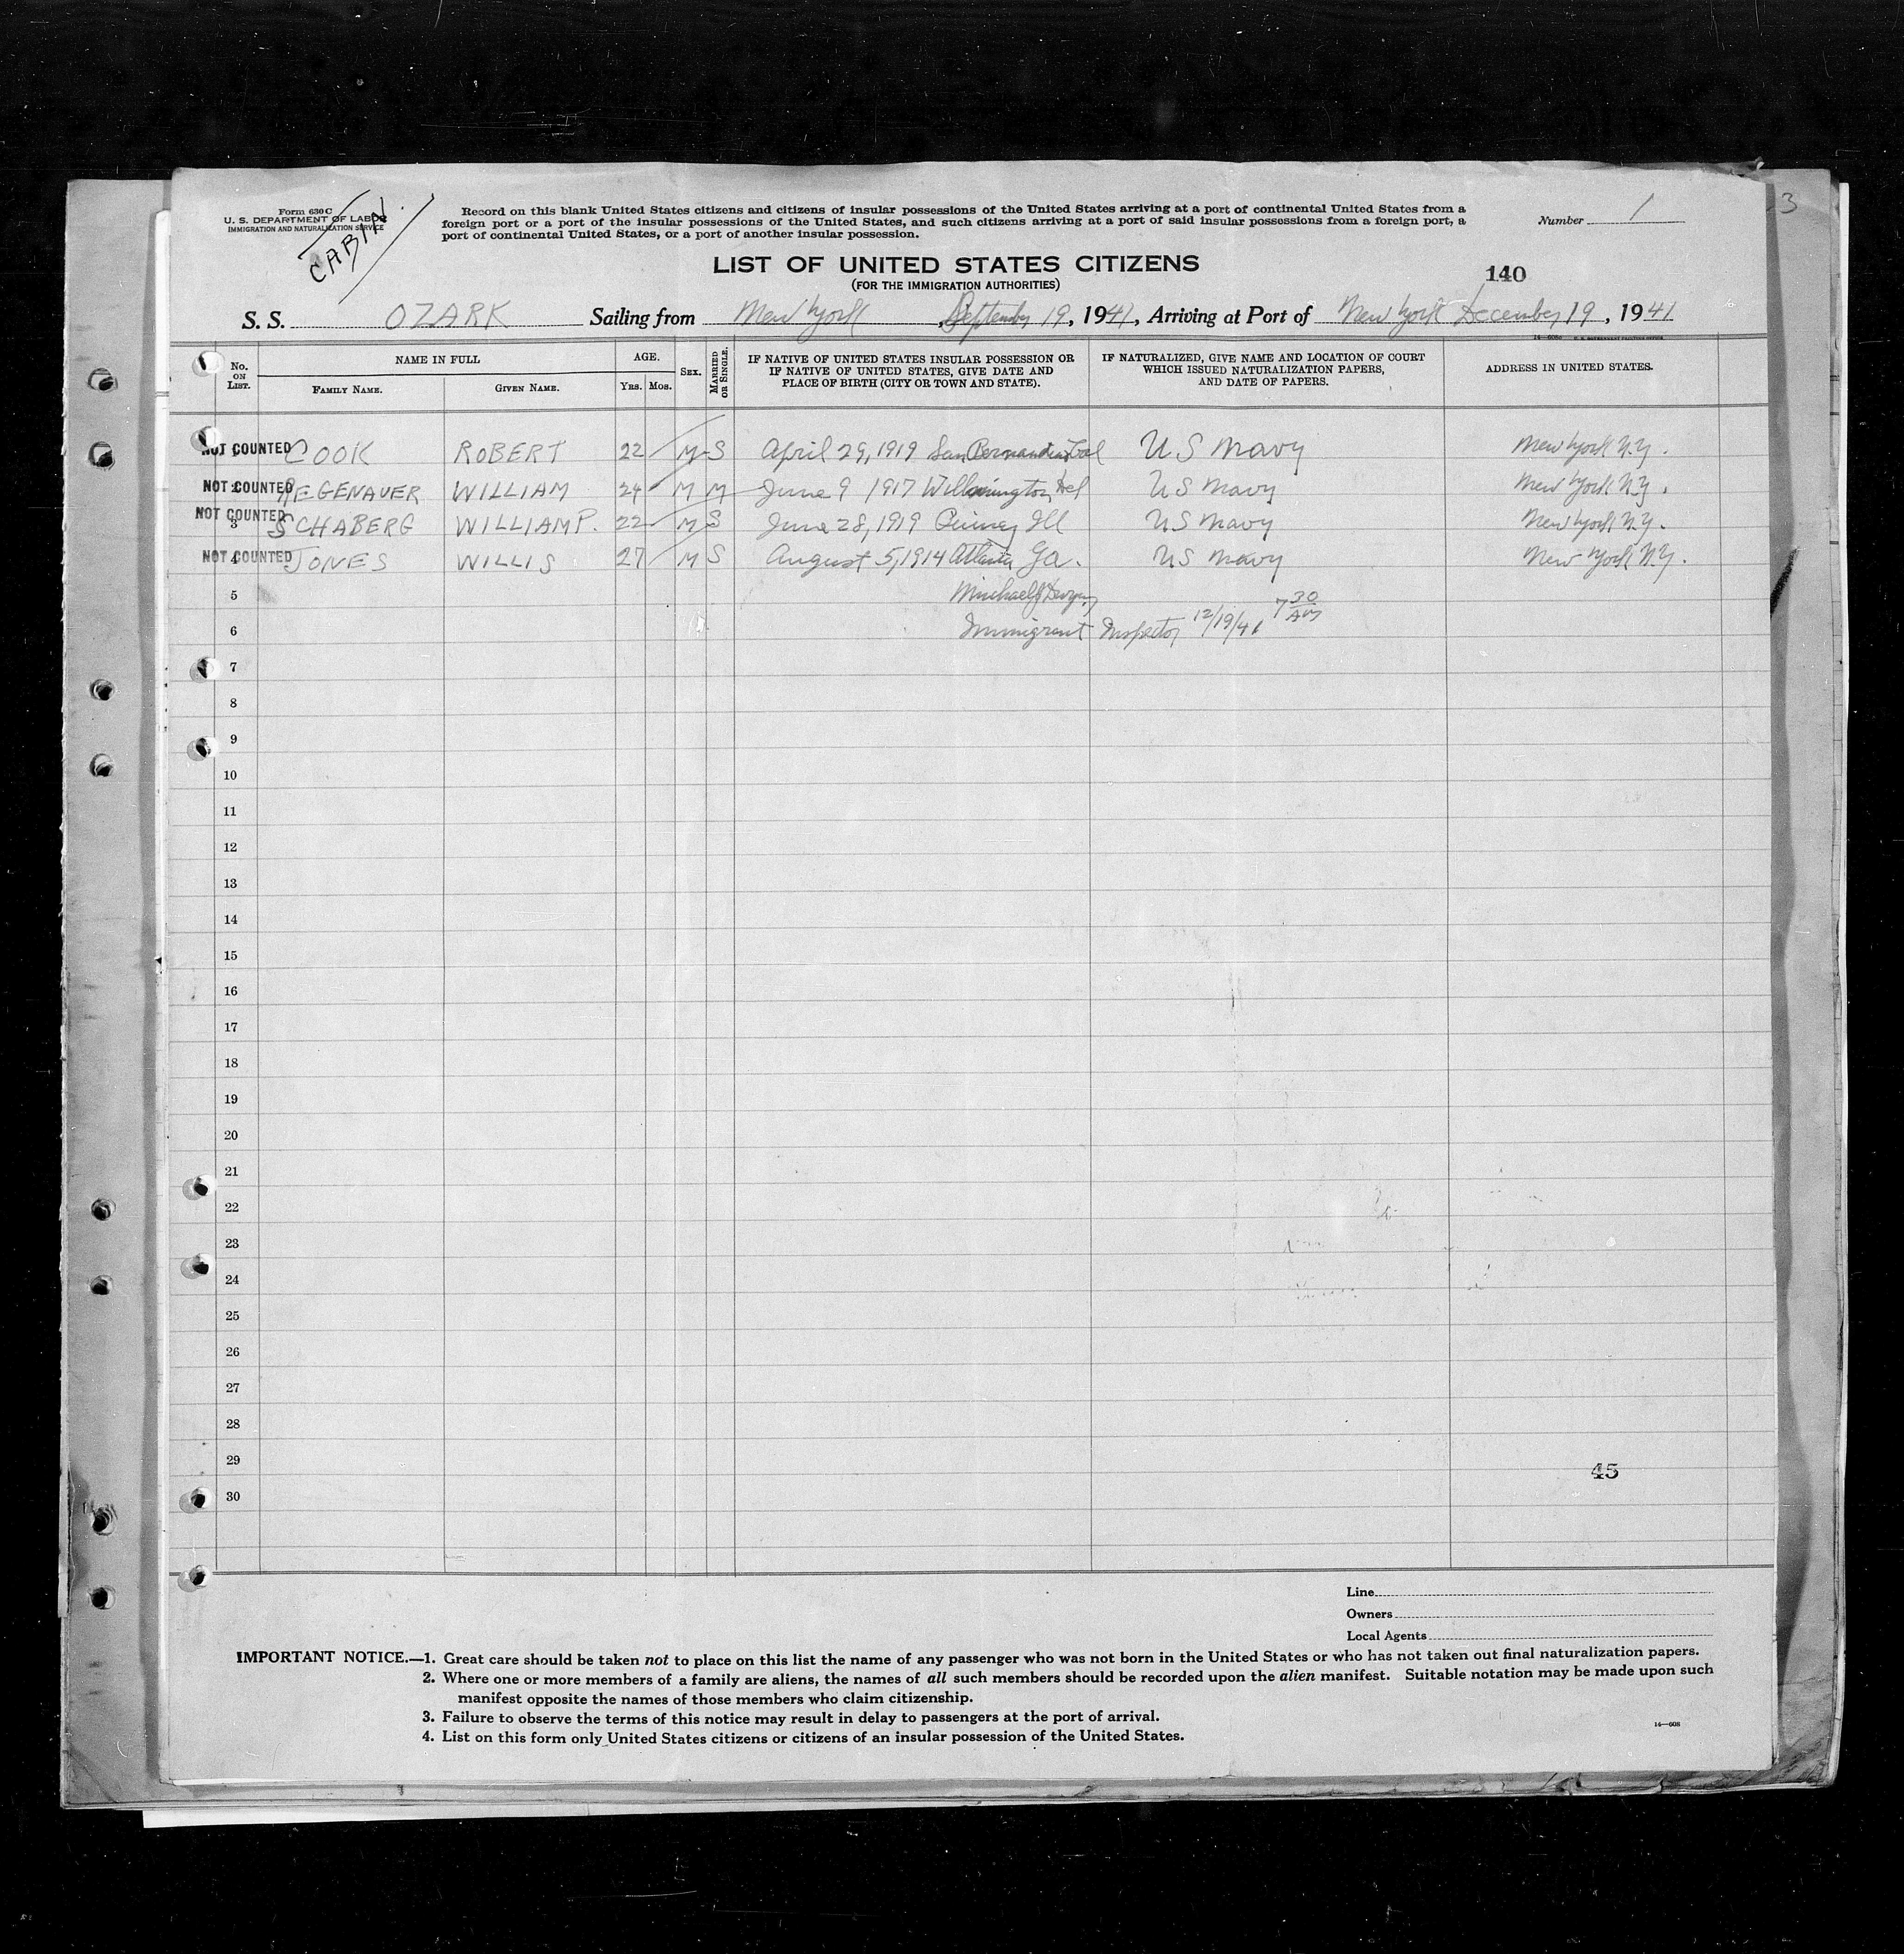 Form 630 C
U. S. DEPARTMENT OF LABOR
IMMIGRATION AND NATURALIZATION SERVICE
CABIN.
Record on this blank United States citizens and citizens of insular possessions of the United States arriving at a port of continental United States from a
foreign port or a port of the insular possessions of the United States, and such citizens arriving at a port of said insular possessions from a foreign port, a
port of continental United States, or a port of another insular possession.
Number 1
3
LIST OF UNITED STATES CITIZENS
(FOR THE IMMIGRATION AUTHORITIES)
140
S. S. OZARK Sailing from New York, September 19, 1941, Arriving at Port of New York December 19, 1941
No. ON LIST. NAME IN FULL FAMILY NAME. GIVEN NAME. AGE. YRS. MOS. SEX. MARRIED OR SINGLE. IF NATIVE OF UNITED STATES INSULAR POSSESSION OR IF NATIVE OF UNITED STATES, GIVE DATE AND PLACE OF BIRTH (CITY OR TOWN AND STATE). IF NATURALIZED, GIVE NAME AND LOCATION OF COURT WHICH ISSUED NATURALIZATION PAPERS, AND DATE OF PAPERS. ADDRESS IN UNITED STATES.
NOT COUNTED COOK ROBERT 22 M S April 29, 1919 San Bernardino Cal US Navy New York N.Y.
NOT COUNTED REGENAUER WILLIAM 24 M M June 9 1917 Wilmington Del US Navy New York N.Y.
NOT COUNTED 3 SCHABERG WILLIAM P. 22 M S June 28, 1919 Ill US Navy New York N.Y.
NOT COUNTED 4 JONES WILLIS 27 M S August 5, 1914 Atlanta Ga. US Navy New York N.Y.
5 Michael J
6 Immigrant Inspector 12/19/41 7 30 AM
7
8
9
10
11
12
13
14
15
16
17
18
19
20
21
22
23
24
25
26
27
28
29
45
30
Line
Owners
Local Agents
IMPORTANT NOTICE.—1. Great care should be taken not to place on this list the name of any passenger who was not born in the United States or who has not taken out final naturalization papers.
2. Where one or more members of a family are aliens, the names of all such members should be recorded upon the alien manifest. Suitable notation may be made upon such
manifest opposite the names of those members who claim citizenship.
3. Failure to observe the terms of this notice may result in delay to passengers at the port of arrival.
14—608
4. List on this form only United States citizens or citizens of an insular possession of the United States.